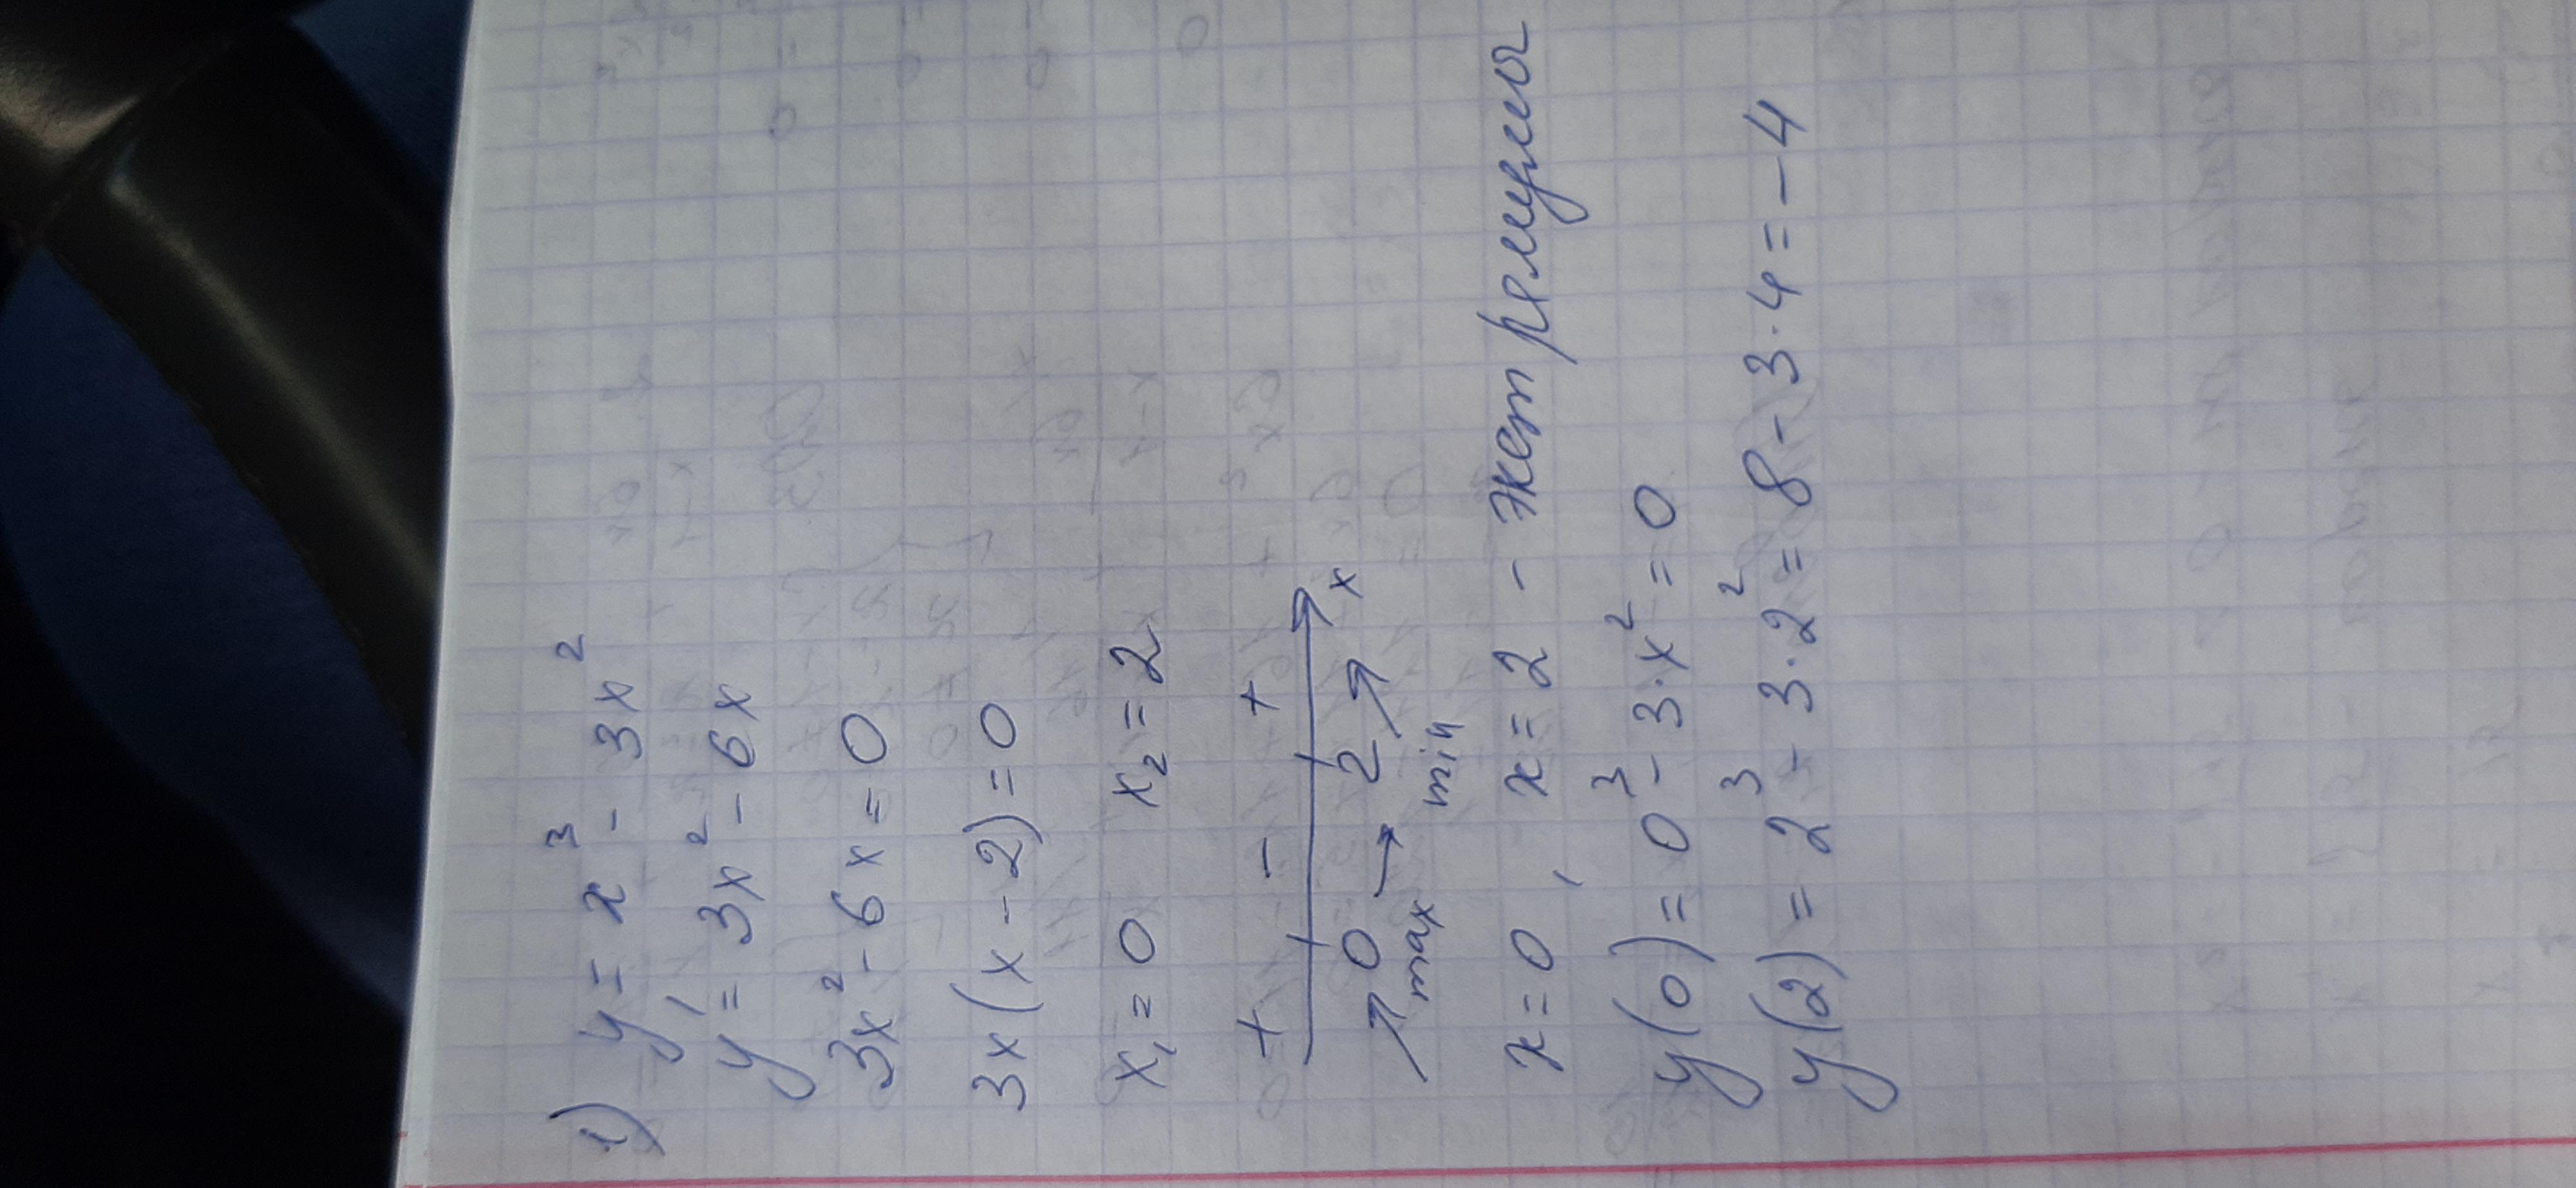 1) y = x³ - 3x²
y' = 3x² - 6x
3x² - 6x = 0
3x(x - 2) = 0
x₁ = 0 x₂ = 2
+ - +
0 2 x
max min
x = 0, x = 2 - экстремумы
y(0) = 0³ - 3·x² = 0
y(2) = 2³ - 3·2² = 8 - 3·4 = -4